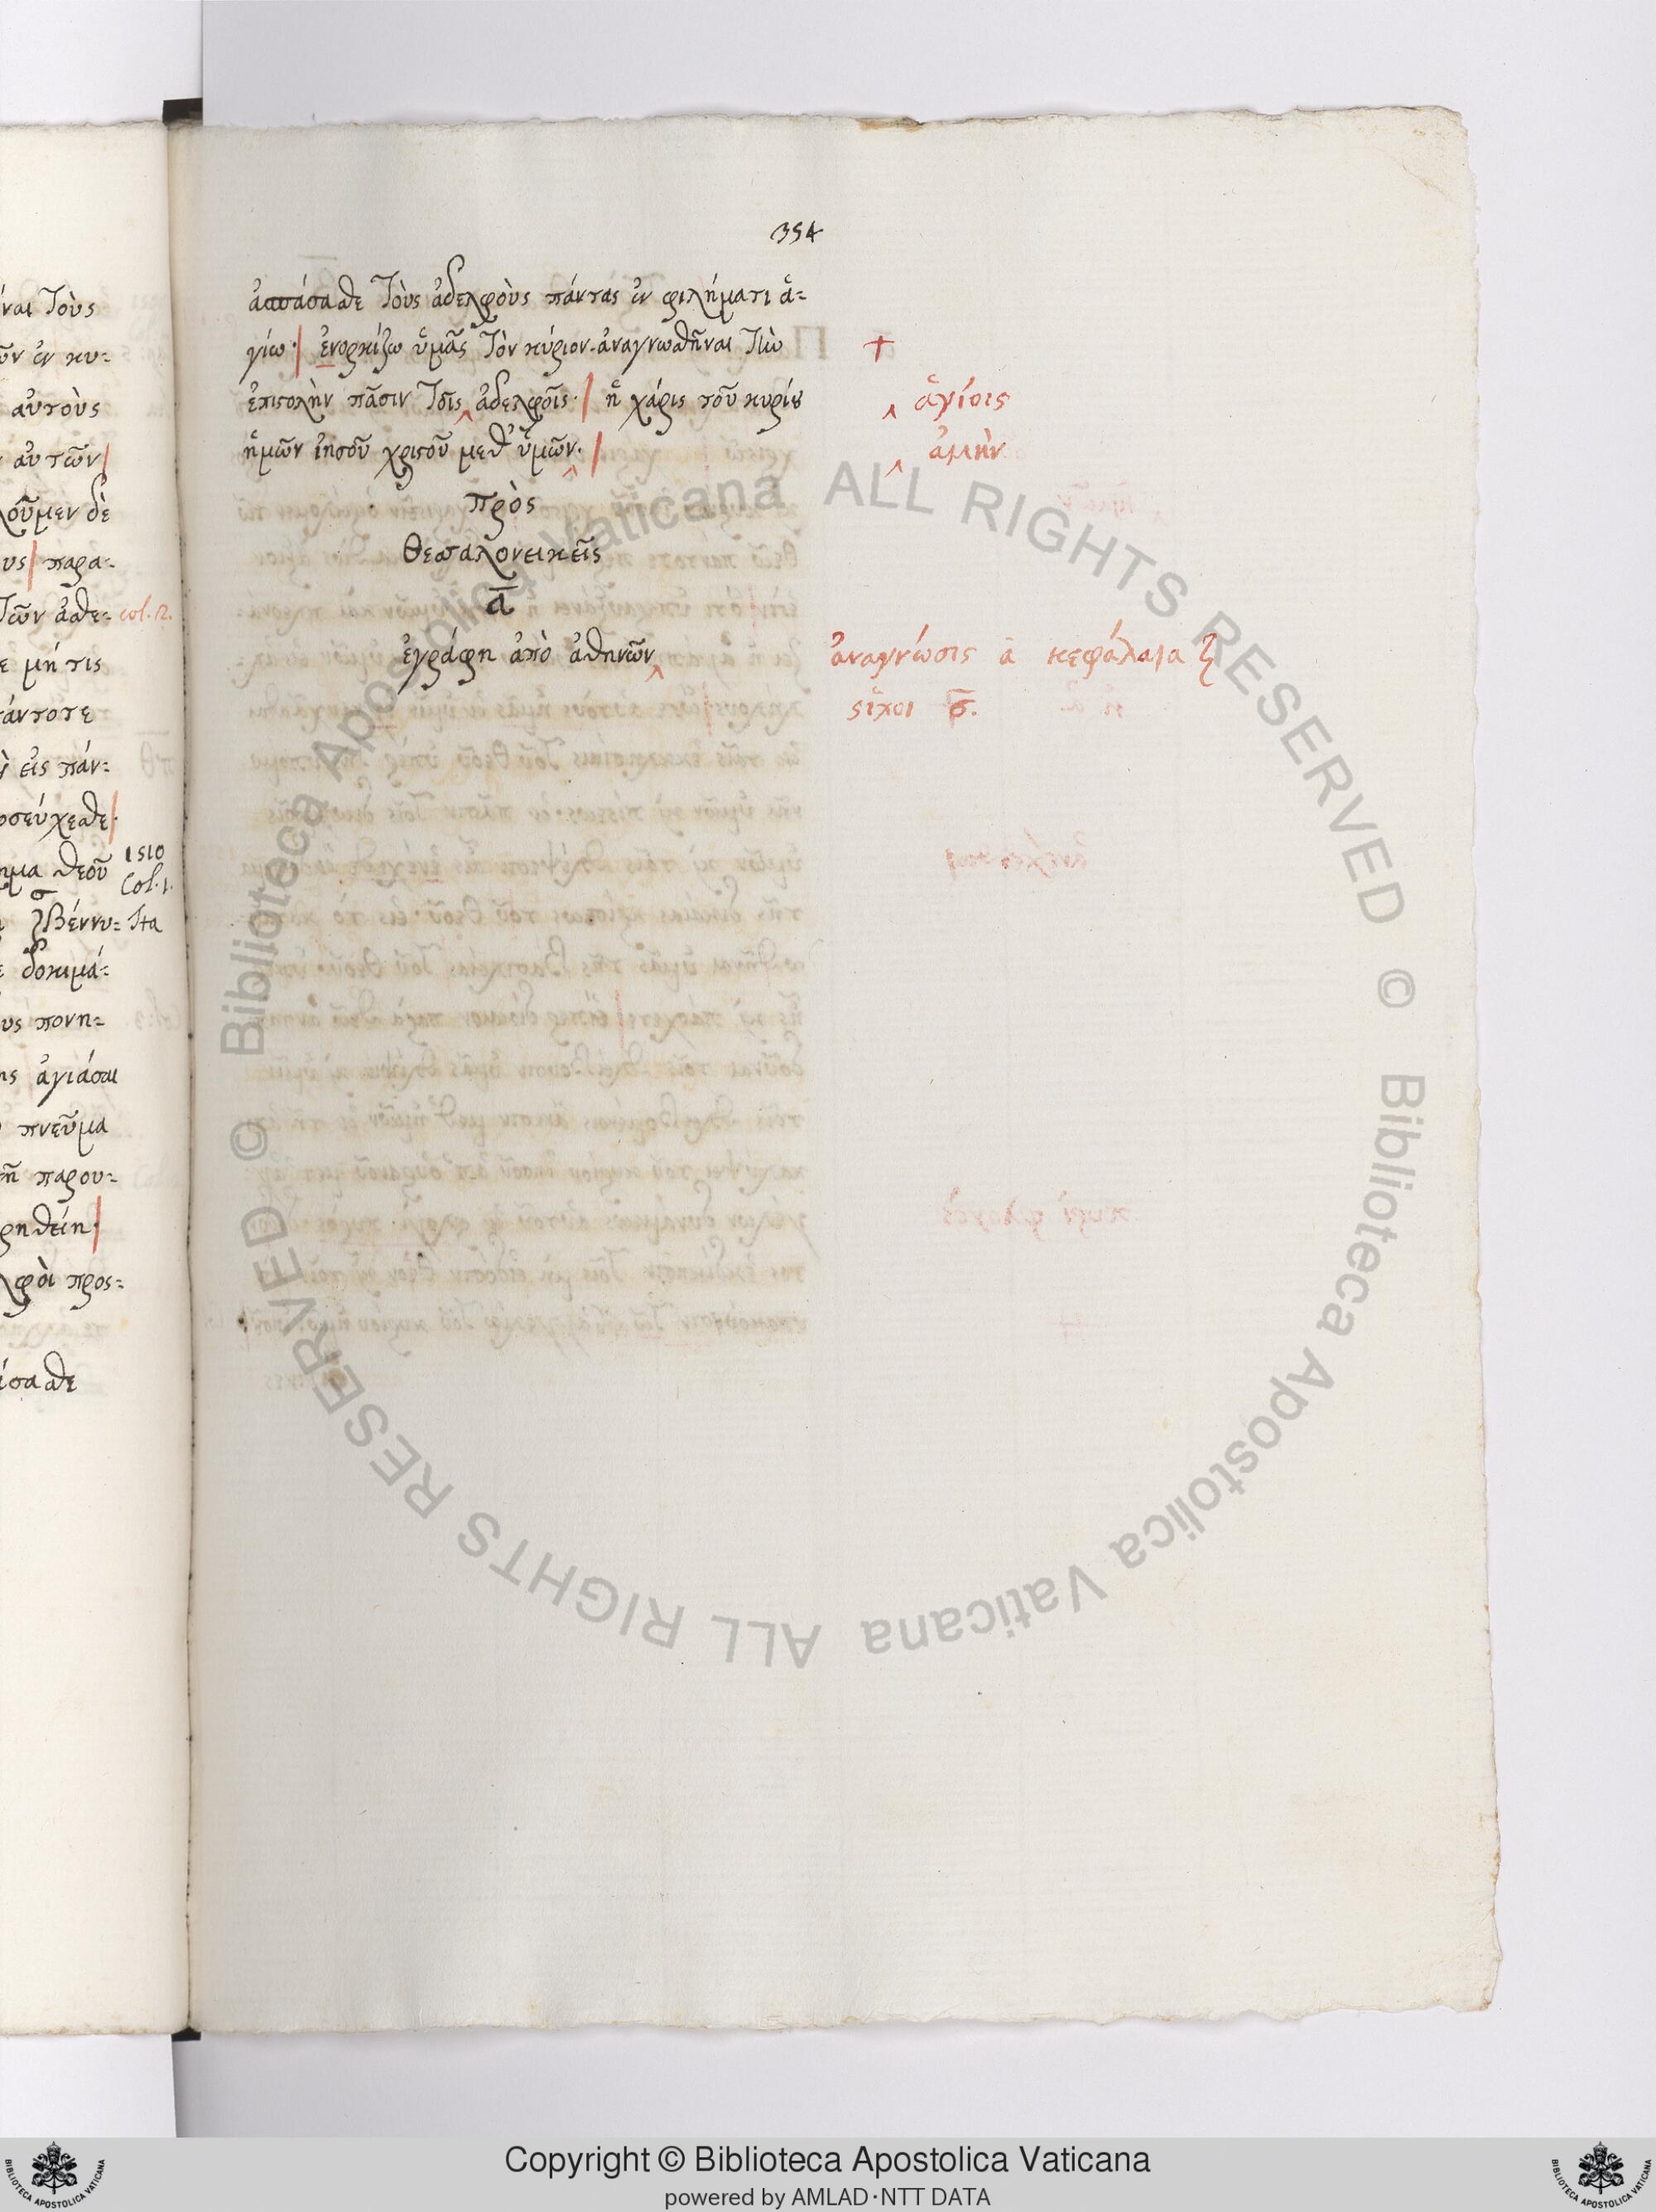 354
ἀσπάσασθε τοὺς ἀδελφοὺς πάντας ἐν φιλήματι ἁ=
γίω· | ἐνορκίζω ὑμᾶς τὸν κύριον· ἀναγνωσθῆναι τὴν +
ἐπιστολὴν πᾶσιν τοῖς ‸ ἀδελφοῖς· | ἡ χάρις τοῦ κυρίου ‸ ἁγίοις
ἡμῶν ἰησοῦ χριστοῦ μεθ' ὑμῶν· ‸ | ‸ ἀμὴν
πρὸς
Θεσσαλονεικεῖς
α̅
ἐγράφη ἀπὸ ἀθηνῶν ‸ ἀναγνώσις α κεφάλαια ζ
στίχοι σ̅.
ναι τοὺς
ῶν ἐν κυ=
αὐτοὺς
αὐτῶν |
λοῦμεν δὲ
υς | παρα=
τῶν ἀσθε= col. 2.
ε μή τις
πάντοτε
εἰς πάν=
οσεύχεσθε | ·
ημα θεοῦ 1510 Col. 1.
ζβέννυ= Ita
σ
ε δοκιμά=
υς πονη=
ης ἁγιάσαι
πνεῦμα
ῆ παρου=
ρηθείη· |
λφοὶ προς=
άσασθε
© Biblioteca Apostolica Vaticana ALL RIGHTS RESERVED © Biblioteca Apostolica Vaticana ALL RIGHTS RESERVED
BIBLIOTECA APOSTOLICA VATICANA
Copyright © Biblioteca Apostolica Vaticana
powered by AMLAD·NTT DATA
BIBLIOTECA APOSTOLICA VATICANA